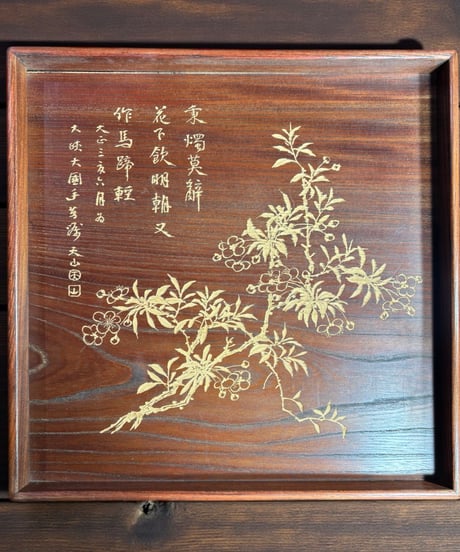 秉燭莫辭
花下飲明朝又
作馬蹄輕
大正三亥六月為
大
天山